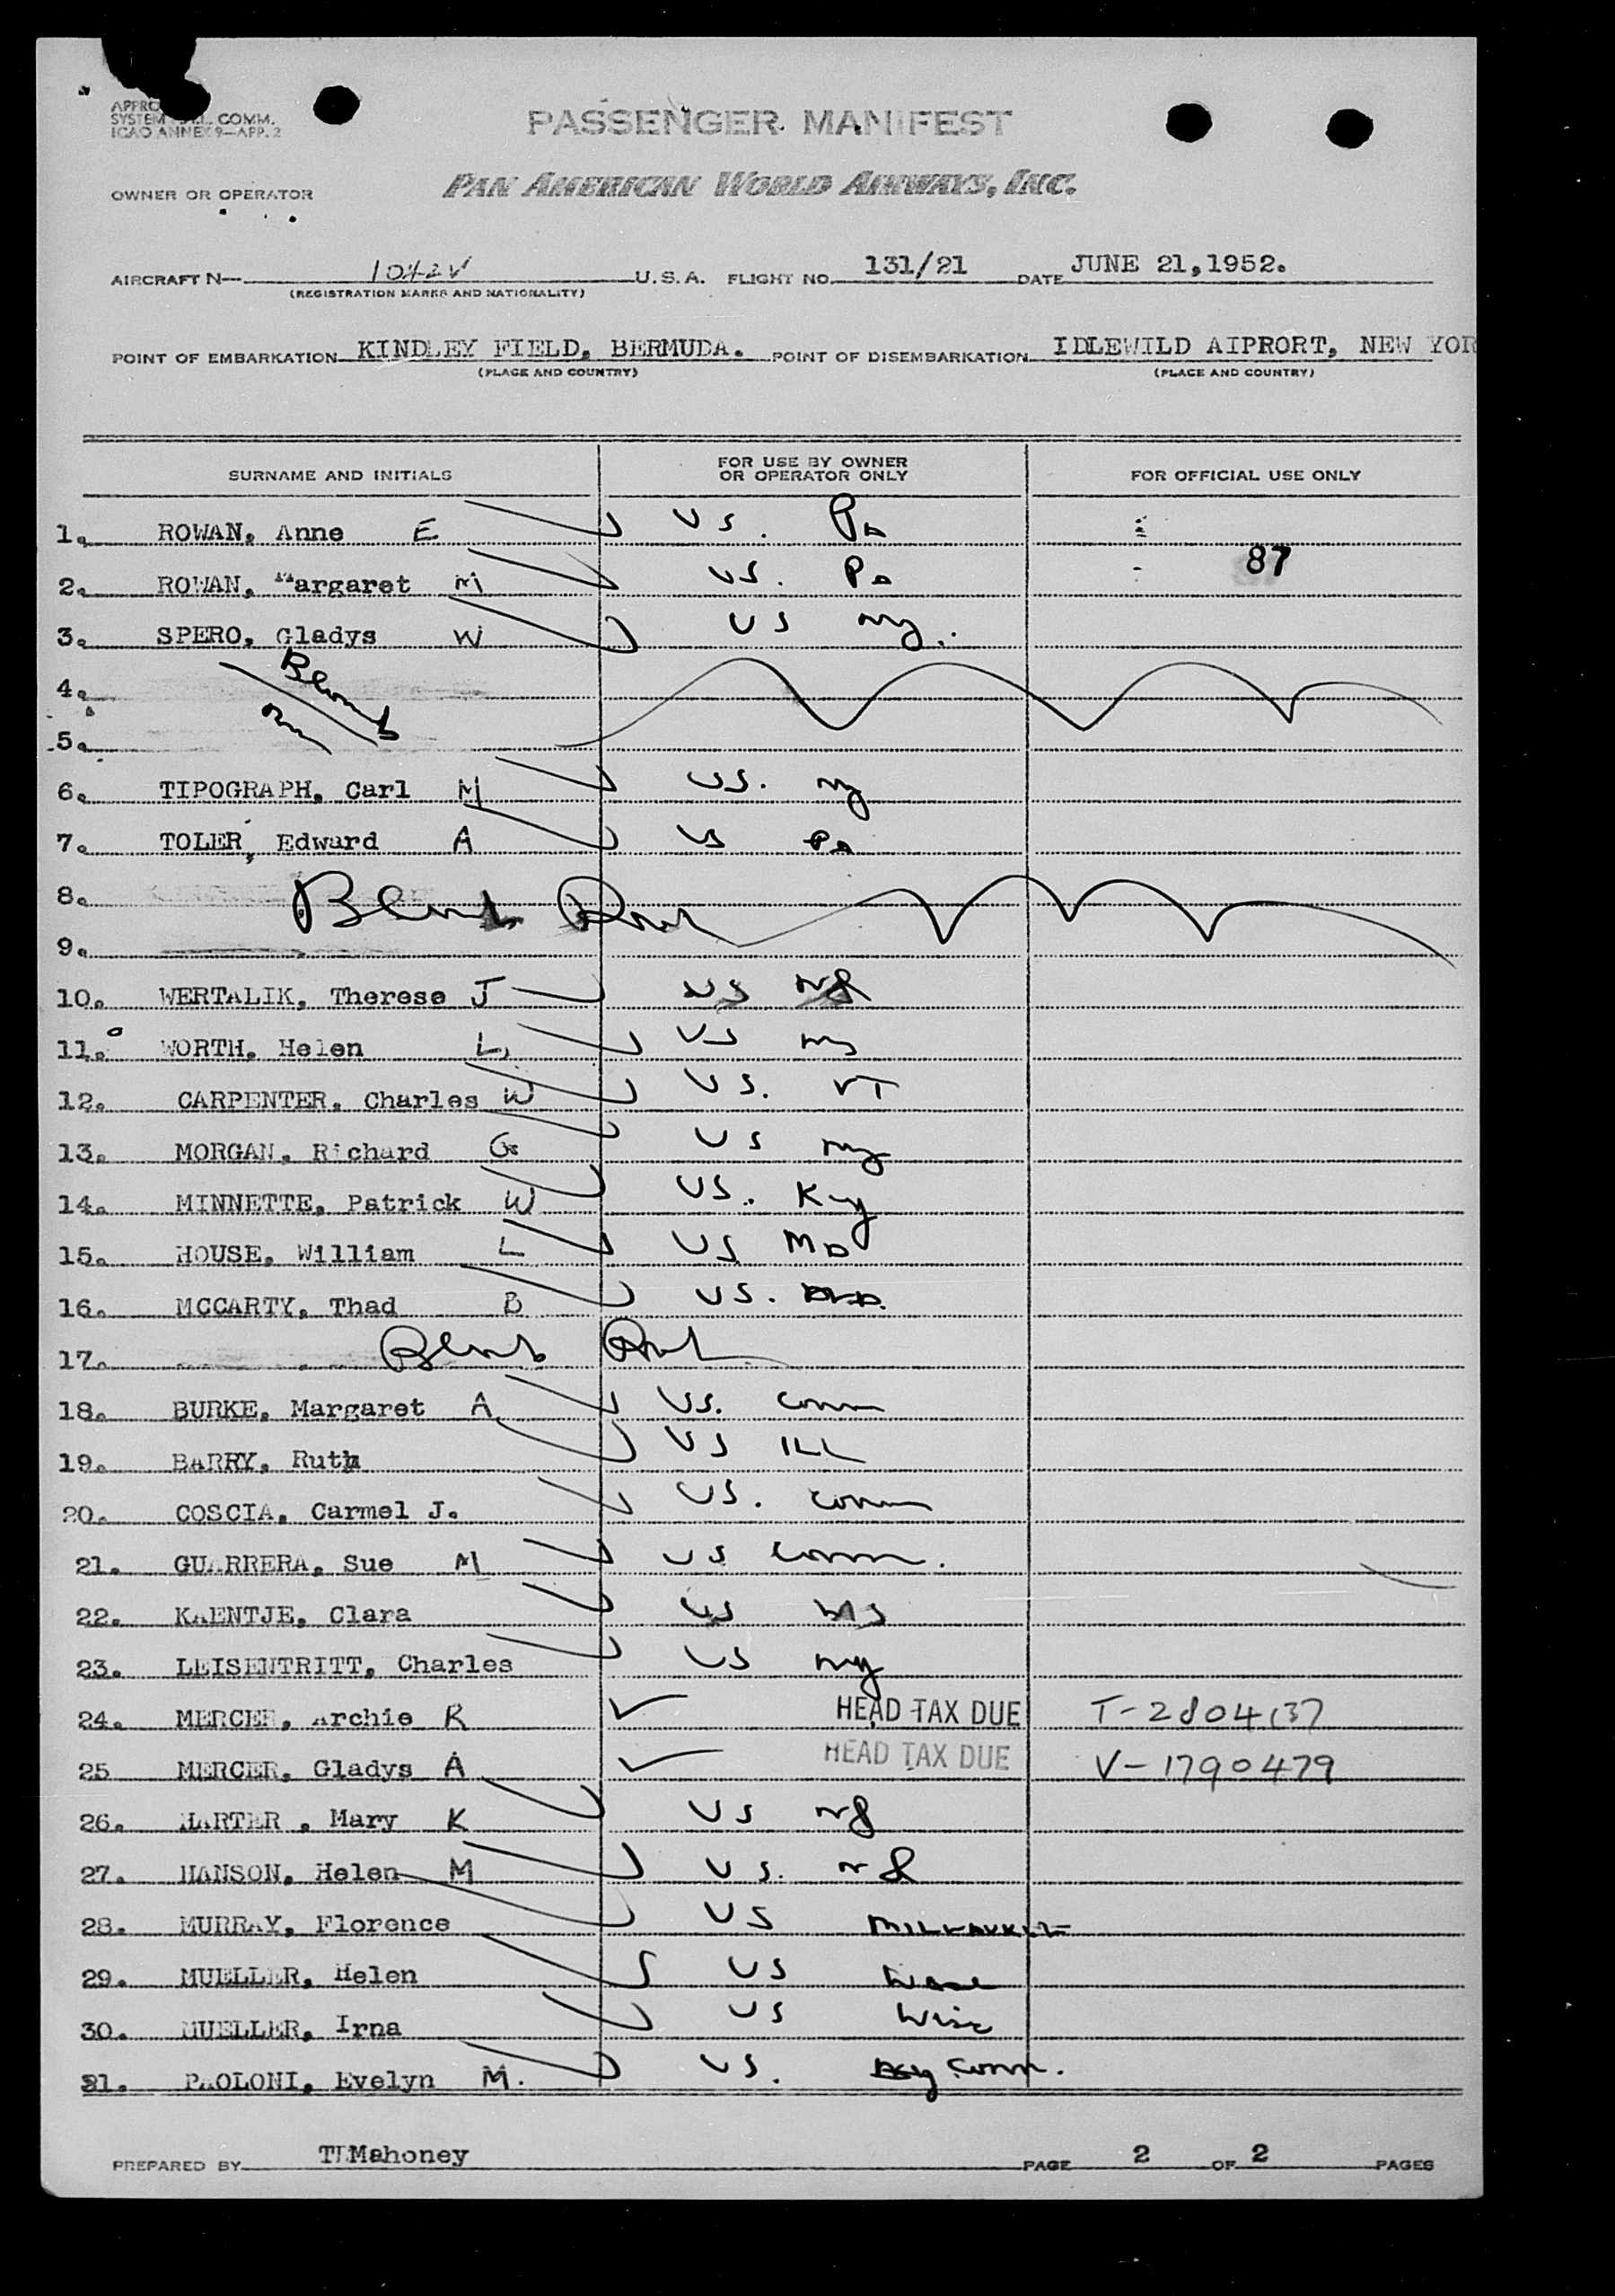 SYSTEM COMM.
ICAO ANNEX 9—APP. 2
PASSENGER MANIFEST
OWNER OR OPERATOR PAN AMERICAN WORLD AIRWAYS, INC.
AIRCRAFT N— 1042V U.S.A. FLIGHT NO. 131/21 DATE JUNE 21,1952.
(REGISTRATION MARKS AND NATIONALITY)
POINT OF EMBARKATION KINDLEY FIELD, BERMUDA. POINT OF DISEMBARKATION IDLEWILD AIPRORT, NEW YOR
(PLACE AND COUNTRY) (PLACE AND COUNTRY)
SURNAME AND INITIALS FOR USE BY OWNER OR OPERATOR ONLY FOR OFFICIAL USE ONLY
1. ROWAN, Anne E US. Pa
87
2. ROWAN, Margaret M US. Pa
3. SPERO, Gladys W US NY.
4.
5.
6. TIPOGRAPH, Carl M US. NY
7. TOLER, Edward A US Pa
8.
9.
10. WERTALIK, Therese J US NJ
11. WORTH, Helen L, US NY
12. CARPENTER, Charles W US. VT
13. MORGAN, Richard G US NY
14. MINNETTE, Patrick W US. Ky
15. HOUSE, William L US MD
16. MCCARTY, Thad B US.
17.
18. BURKE, Margaret A US. Conn
19. BARRY, Ruth US ILL
20. COSCIA, Carmel J. US. Conn
21. GUARRERA, Sue M US Conn.
22. KAENTJE, Clara US
23. LEISENTRITT, Charles US NY
24. MERCER, Archie R HEAD TAX DUE T-2804137
25 MERCER, Gladys A HEAD TAX DUE V-1790479
26. HARTER , Mary K US NJ
27. HANSON, Helen M US. NJ
28. MURRAY, Florence US MILWAUKEE
29. MUELLER, Helen US
30. MUELLER, Irna US Wisc
31. PAOLONI, Evelyn M. US. Conn.
PREPARED BY TLMahoney PAGE 2 OF 2 PAGES